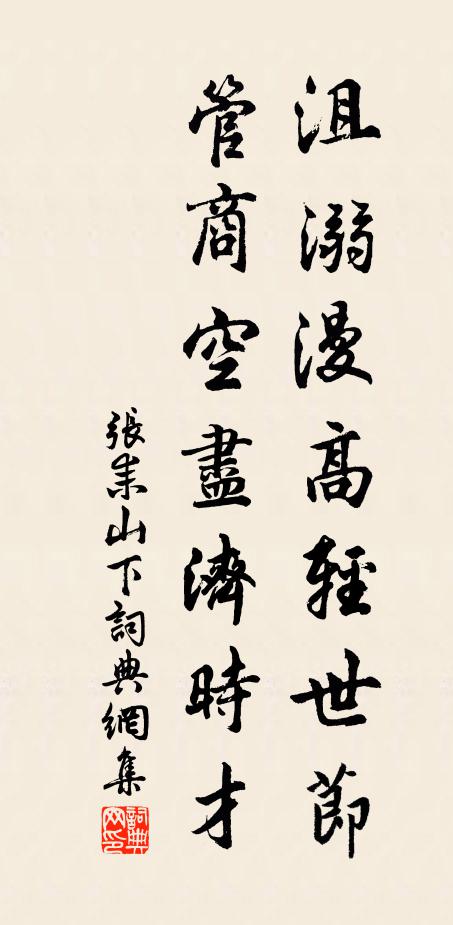 沮溺漫高輕世節
管商空盡濟時才
張耒山下詞典網集
詞典網印